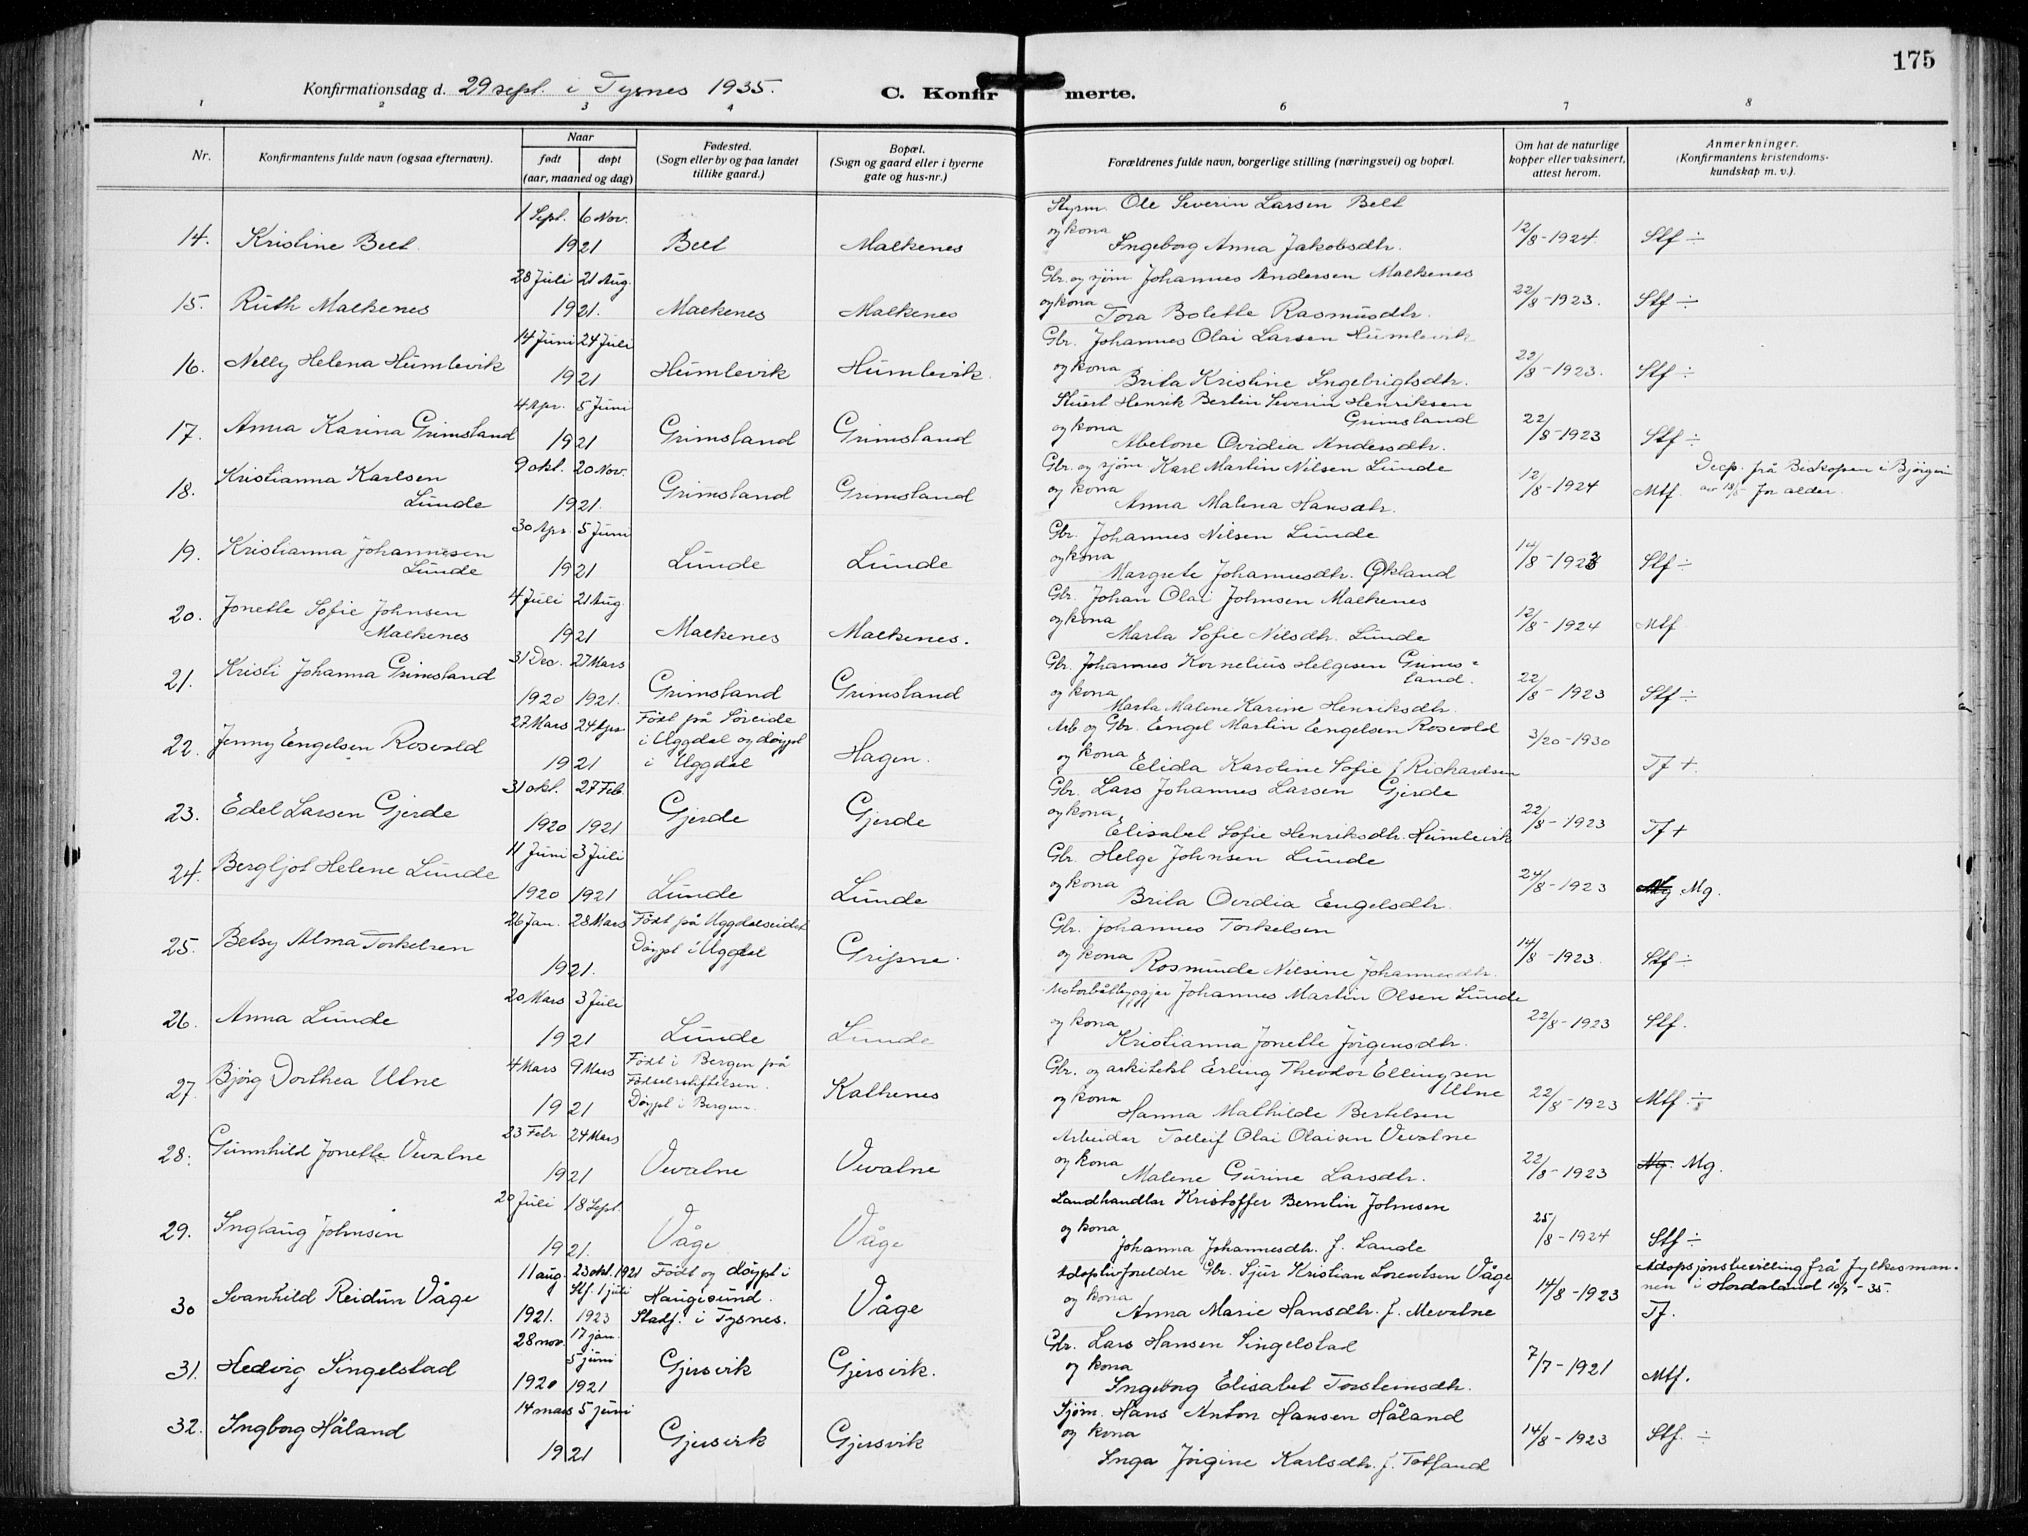 175
Konfirmationsdag d. 29 sept. i Tysnes 1935.
C. Konfirmerte.
1 2 3 4 6 7 8
Nr.
Konfirmantens fulde navn (ogsaa efternavn).
Naar
født døpt
(aar, maaned og dag)
Fødested.
(Sogn eller by og paa landet
tillike gaard.)
Bopæl.
(Sogn og gaard eller i byerne
gate og hus-nr.)
Forældrenes fulde navn, borgerlige stilling (næringsvei) og bopæl.
Om hat de naturlige
kopper eller vaksinert,
attest herom.
Anmerkninger.
(Konfirmantens kristendoms-
kundskap m. v.).
1 Sept. 6 Nov. Styrm. Ole Severin Larsen Belt
14. Kristine Belt 1921 Belt Malkenes og kona Ingeborg Anna Jakobsdtr. 12/8-1924. Stf ÷
28 Juli 21 Aug. Gbr. og sjøm. Johannes Andersen Malkenes
15. Ruth Malkenes 1921. Malkenes Malkenes og kona Tora Bolette Rasmusdtr. 22/8-1923. Stf ÷
14 Juni 24 Juli Gbr. Johannes Olai Larsen Humlevik
16. Nelly Helena Humlevik 1921 Humlevik Humlevik. og kona Brita Kristine Ingebrigtsdtr. 22/8-1923. Stf ÷
4 Apr. 5 Juni Stuert Henrik Bertin Severin Henriksen
Grimsland
17. Anna Karina Grimsland 1921 Grimsland Grimsland og kona Abelone Ovidia Andersdtr. 22/8-1923 Stf ÷
9 okt. 20 Nov. Gbr. og sjøm. Karl Martin Nilsen Lunde Desp. frå Biskopen i Bjørgvin
18. Kristianna Karlsen
Lunde 1921. Grimsland Grimsland og kona Anna Malena Hansdtr. 12/8-1924 Mtf. av 18/5 for alder.
30 Apr. 5 Juni Gbr. Johannes Nilsen Lunde
19. Kristianna Johannesen
Lunde 1921 Lunde Lunde og kona Margrete Johannesdtr. Økland 14/8-1923 Stf ÷
4 Juli 21 Aug. Gbr. Johan Olai Johnsen Malkenes
20. Jonette Sofie Johnsen
Malkenes 1921 Malkenes Malkenes. og kona Marta Sofie Nilsdtr. Lunde 12/8-1924 Mtf
31 Dec. 27 Mars Gbr. Johannes Kornelius Helgesen Grims-
land.
21. Kristi Johanna Grimsland 1920 1921. Grimsland Grimsland og kona Marta Malene Karine Henriksdtr. 22/8-1923 Stf ÷
27 Mars 24 Apr Født på Søreide Arb. og Gbr. Engel Martin Engelsen Rosvold
i Uggdal og døypt
22. Jenny Engelsen Rosvold 1921 i Uggdal Hagen. og kona Elida Karoline Sofie f. Richardsen 3/20-1930 Tf +.
31 okt. 27 Feb Gbr. Lars Johannes Larsen Gjerde
23. Edel Larsen Gjerde 1920 1921 Gjerde Gjerde og kona Elisabet Sofie Henriksdtr. Humlevik 22/8-1923 Tf +
11 Juni 3 Juli Gbr. Helge Johnsen Lunde
24. Bergljot Helene Lunde 1920 1921 Lunde Lunde og kona Brita Ovidia Engelsdtr. 24/8-1923 Mg.
26 Jan. 28 Mars Født på Uggdalseidet Gbr. Johannes Torkelsen
25. Betsy Alma Torkelsen 1921. Døypt i Uggdal Gripne. og kona Rosmunde Nilsine Johannesdtr. 14/8-1923. Stf ÷
20 Mars 3 Juli Motorbåtbyggjer Johannes Martin Olsen Lunde
26. Anna Lunde 1921 Lunde Lunde og kona Kristianna Jonette Jörgensdtr. 22/8-1923 Stf.
4 Mars 9 Mars Født i Bergen på Gbr. og arkitekt Erling Theodor Ellingsen
Fødselsstiftelsen. Utne
27. Bjørg Dorthea Utne 1921 Døypt i Bergen. Kalhenes og kona Hanna Mathilde Bertelsen 22/8-1923 Mtf. ÷
23 Febr 24 Mars Arbeider Tolleif Olai Olaisen Vevatne
28. Gunnhild Jonette Vevatne 1921 Vevatne Vevatne og kona Malene Gurine Larsdtr. 22/8-1923 Ng. Mg.
20 Juli 18 Sept. Landhandlar Kristoffer Berntin Johnsen
29. Inglaug Johnsen 1921. Våge Våge og kona Johanna Johannesdtr. f. Lande 25/8-1924 Stf ÷
11 aug. 23 okt. 1921 Født og døypt i Adoptivforeldre Gbr. Sjur Kristian Lorentsen Våge Adopsjonsbevilling frå fylkesman-
30 Svanhild Reidun Våge Stf. 1 juli Haugesund. Våge og kona 14/8-1923 nen i Hordaland 10/7-35.
1921. 1923 Stadf. i Tysnes. Anna Marie Hansdtr. f. Mevatne Tf.
28 nov. 17 jan. Gbr. Lars Hansen Singelstad
5 juni
31. Hedvig Singelstad 1920 1921 Gjersvik Gjersvik. og kona Ingeborg Elisabet Torsteinsdtr. 7/7-1921 Mtf.
14 mars 5 juni Sjøm. Hans Anton Hansen Håland
32. Ingborg Håland 1921 Gjersvik Gjersvik og kona Inga Jørgine Karlsdtr. f. Totland 14/8-1923 Stf. ÷